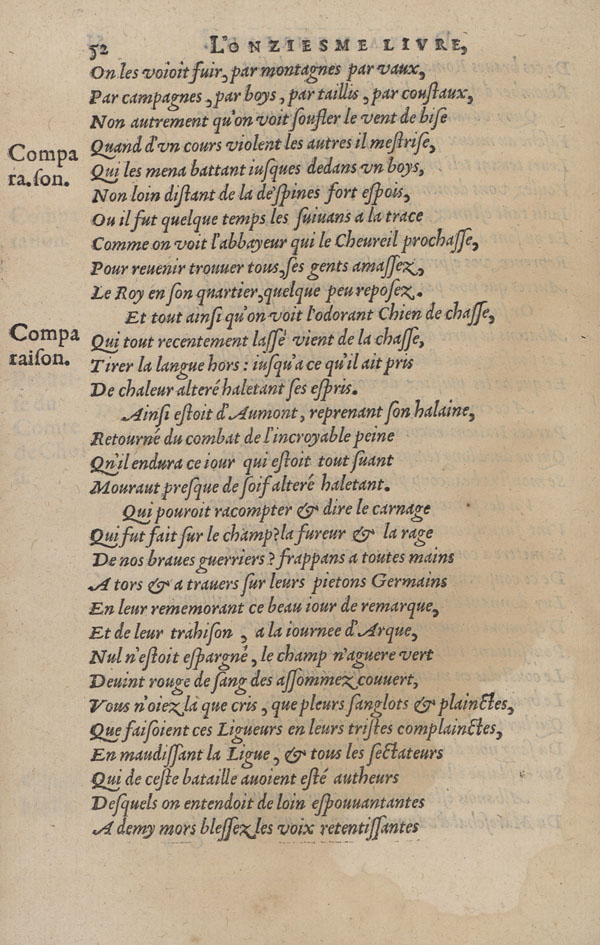 52 L'ONZIESME LIVRE,
On les voioit fuir, par montagnes par vaux,
Par campagnes, par boys, par taillis, par coustaux,
Non autrement qu'on voit soufler le vent de bise
Compa
ra.son.
Quand d'vn cours violent les autres il mestrise,
Qui les mena battant iusques dedans vn boys,
Non loin distant de la d'espines fort espois,
Ou il fut quelque temps les suiuans a la trace
Comme on voit l'abbayeur qui le Cheureil prochasse,
Pour reuenir trouuer tous, ses gents amassez,
Le Roy en son quartier, quelque peu reposez.
Et tout ainsi qu'on voit l'odorant Chien de chasse,
Compa
raison.
Qui tout recentement lassé vient de la chasse,
Tirer la langue hors : iusqu'a ce qu'il ait pris
De chaleur alteré haletant ses espris.
Ainsi estoit d'Aumont, reprenant son halaine,
Retourné du combat de l'incroyable peine
Qu'il endura ce iour qui estoit tout suant
Mouraut presque de soif alteré haletant.
Qui pouroit racompter & dire le carnage
Qui fut fait sur le champ? la fureur & la rage
De nos braues guerriers? frappans a toutes mains
A tors & a trauers sur leurs pietons Germains
En leur rememorant ce beau iour de remarque,
Et de leur trahison, a la iournee d'Arque,
Nul n'estoit espargné, le champ n'aguere vert
Deuint rouge de sang des assommez couuert,
Vous n'oiez là que cris, que pleurs sanglots & plainctes,
Que faisoient ces Ligueurs en leurs tristes complainctes,
En maudissant la Ligue, & tous les sectateurs
Qui de ceste bataille auoient esté autheurs
Desquels on entendoit de loin espouuantantes
A demy mors blessez les voix retentissantes